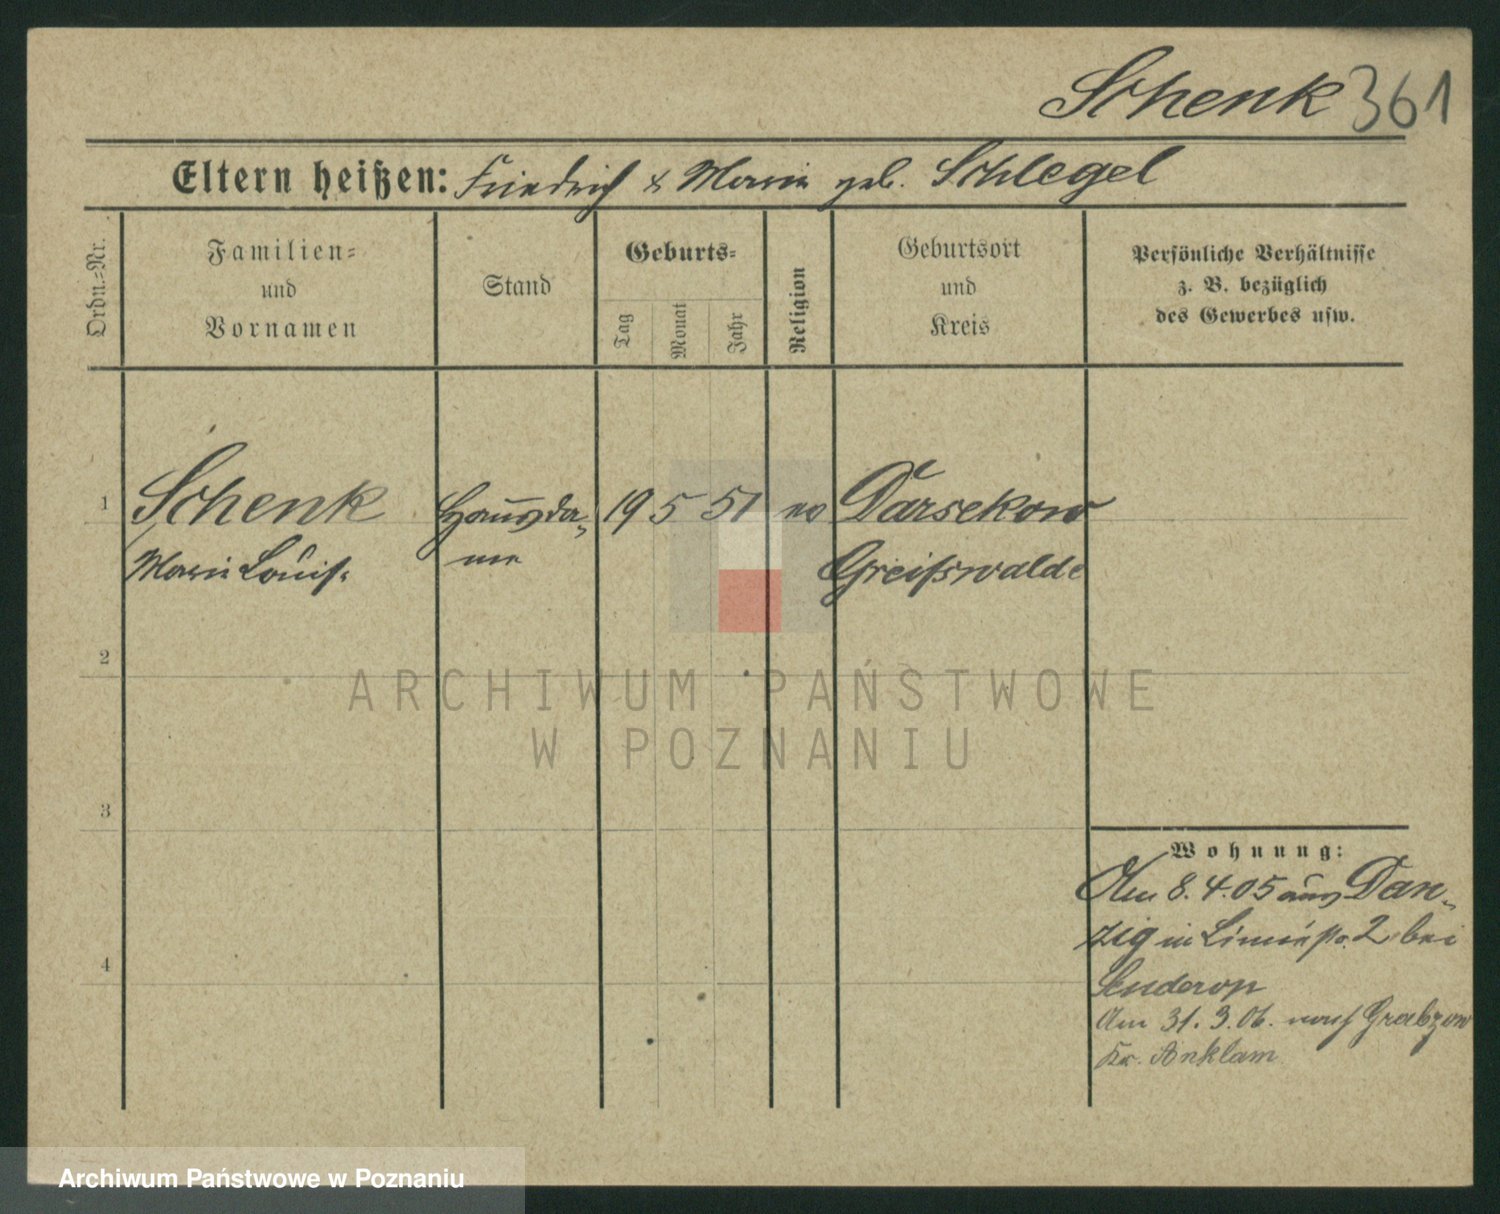 Schenk 361
Eltern heißen: Friedrich & Marie geb. Schlegel
Ordn.=Nr.
Familien=
und
Vornamen
Stand
Geburts=
Tag
Monat
Jahr
Religion
Geburtsort
und
Kreis
Persönliche Verhältnisse
z. B. bezüglich
des Gewerbes usw.
1 Schenk Hausda= 19 5 51 ev Darsekow
Marie Louise me Greifswalde
2
3
4
Wohnung:
Am 8.4.05 aus Dan=
zig in 2 bei
Am 31.3.06. nach Grabzow
Kr. Anklam
ARCHIWUM PAŃSTWOWE
W POZNANIU
Archiwum Państwowe w Poznaniu